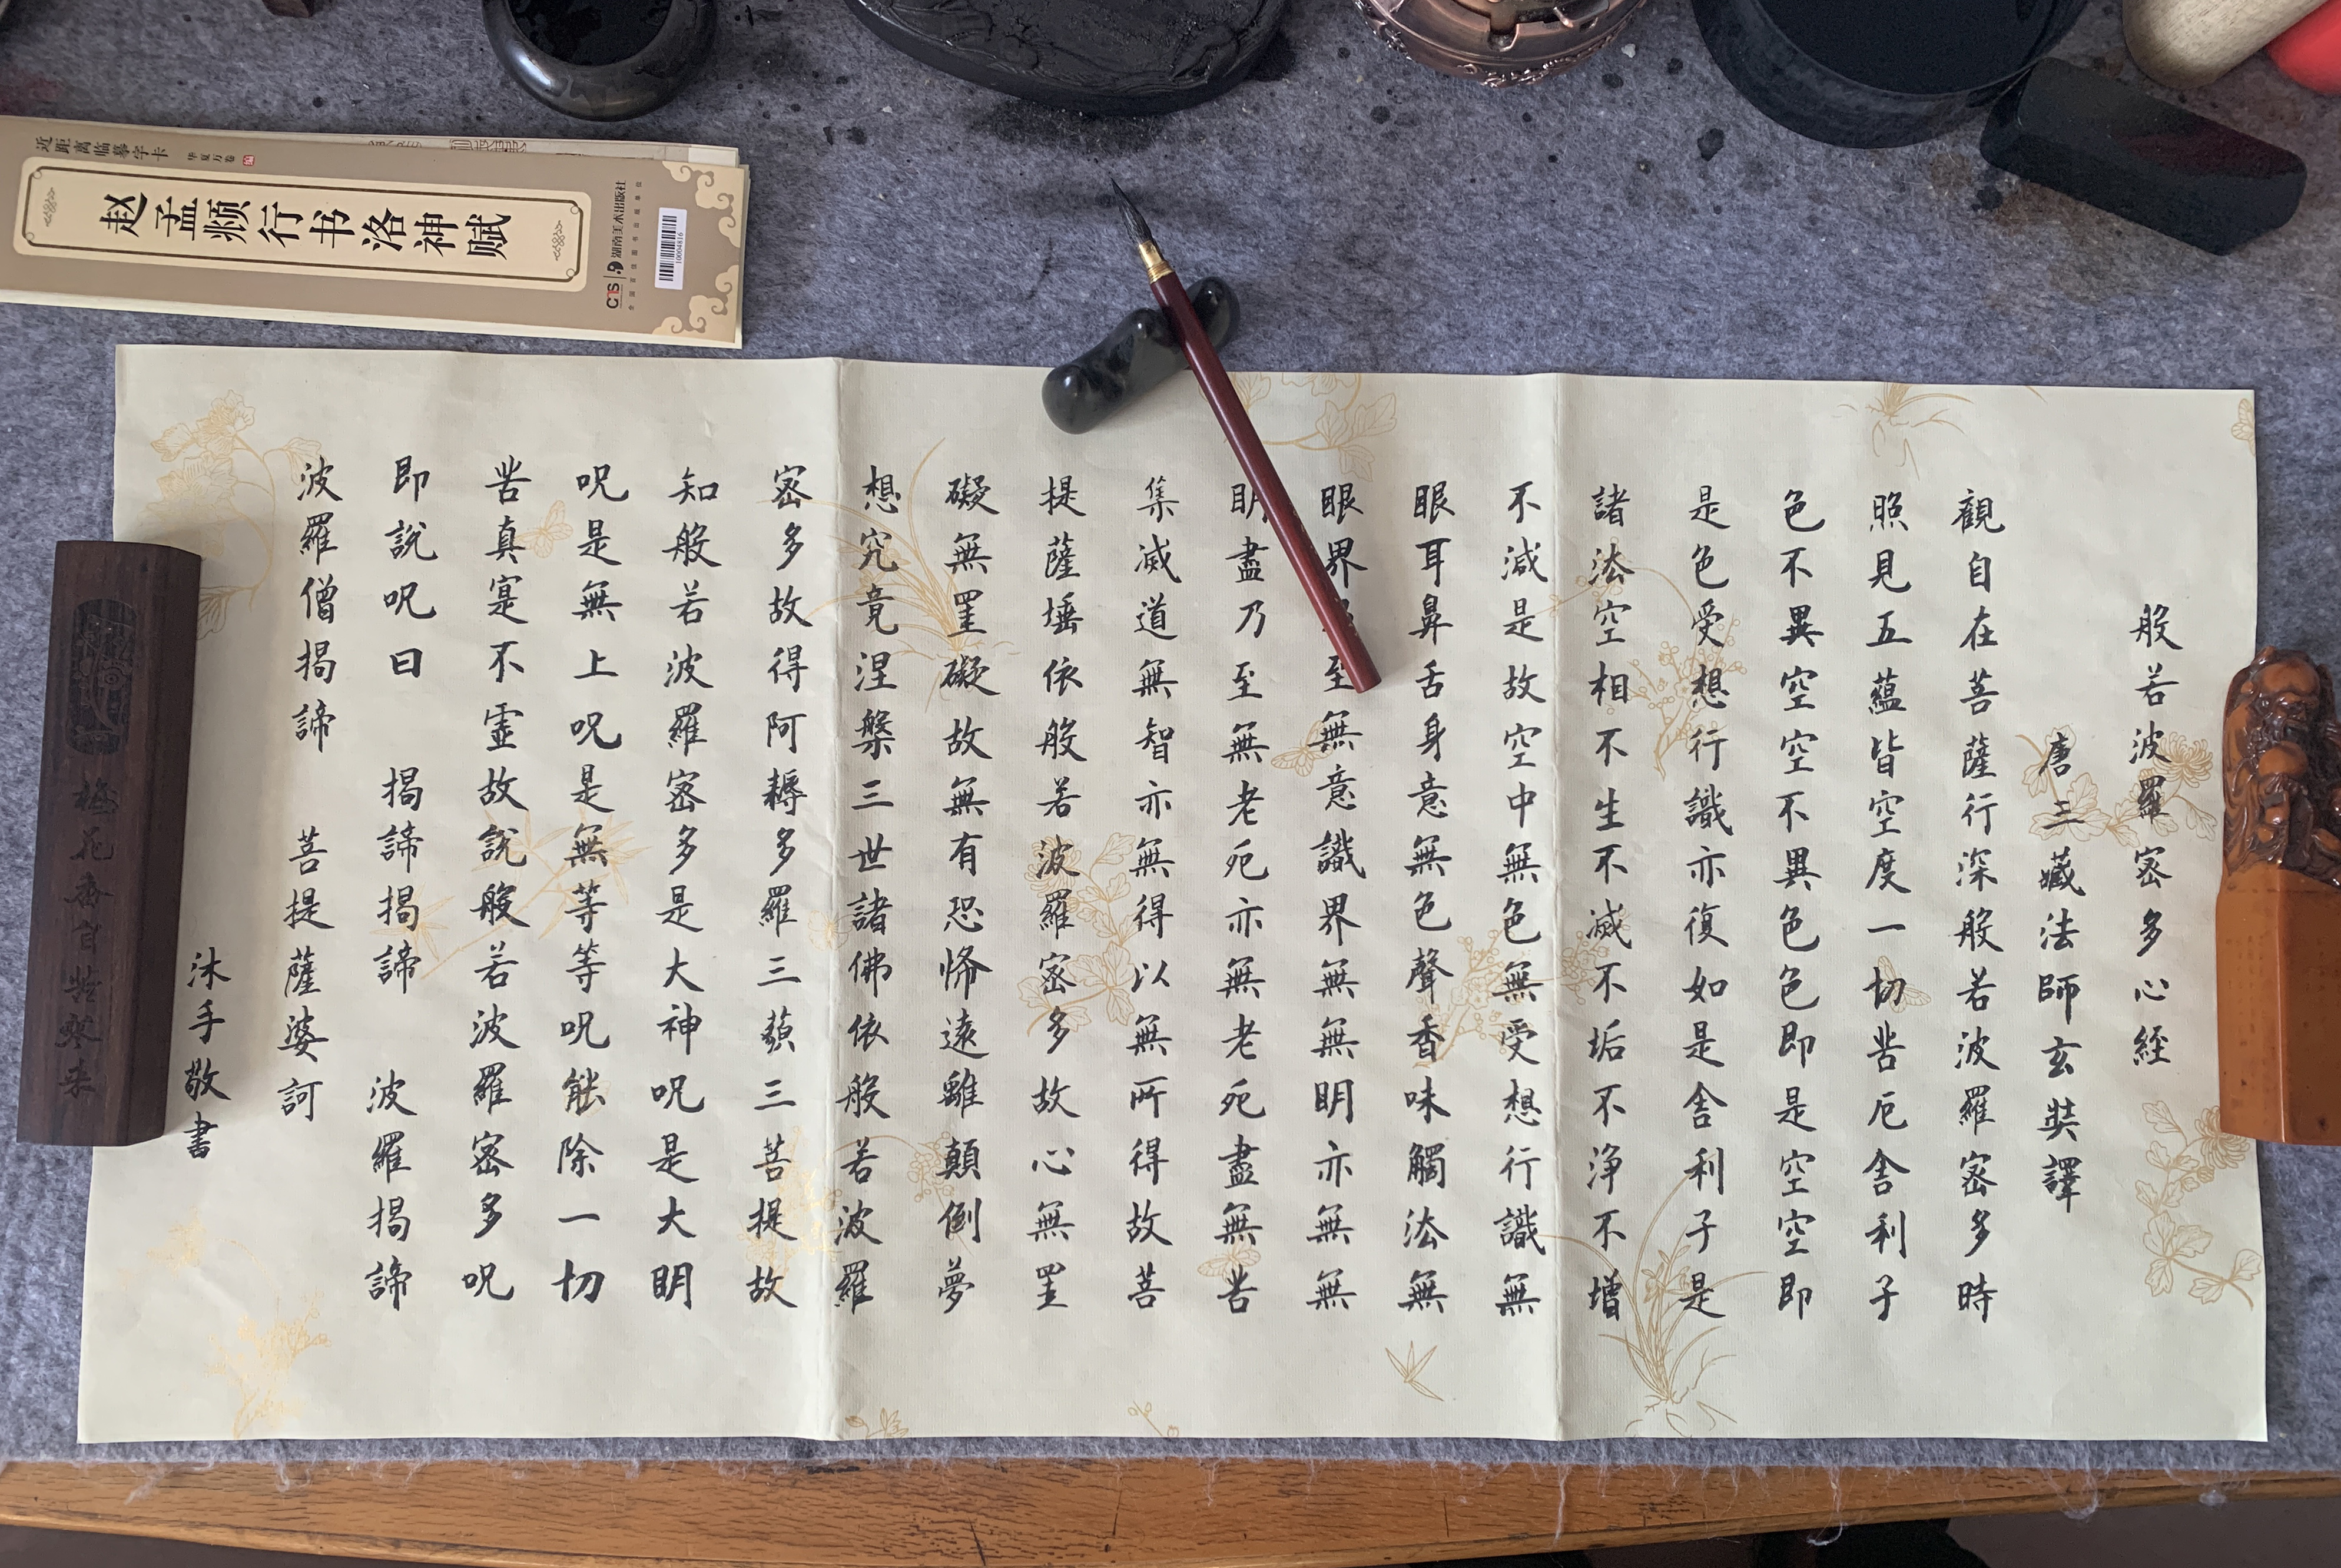 近距离临摹字卡
华夏万卷
赵孟頫行书洛神赋
湖南美术出版社
全国百佳图书出版单位
100004816
般若波羅密多心經
唐三藏法師玄奘譯
觀自在菩薩行深般若波羅密多時
照見五蘊皆空度一切苦厄舍利子
色不異空空不異色色即是空空即
是色受想行識亦復如是舍利子是
諸法空相不生不滅不垢不淨不增
不減是故空中無色無受想行識無
眼耳鼻舌身意無色聲香味觸法無
眼界至無意識界無無明亦無無
明盡乃至無老死亦無老死盡無苦
集滅道無智亦無得以無所得故菩
提薩埵依般若波羅密多故心無罣
礙無罣礙故無有恐怖遠離顛倒夢
想究竟涅槃三世諸佛依般若波羅
密多故得阿耨多羅三藐三菩提故
知般若波羅密多是大神呪是大明
呪是無上呪是無等等呪能除一切
苦真實不虛故說般若波羅密多呪
即說呪曰 揭諦揭諦 波羅揭諦
波羅僧揭諦 菩提薩婆訶
沐手敬書
梅花香自苦寒来